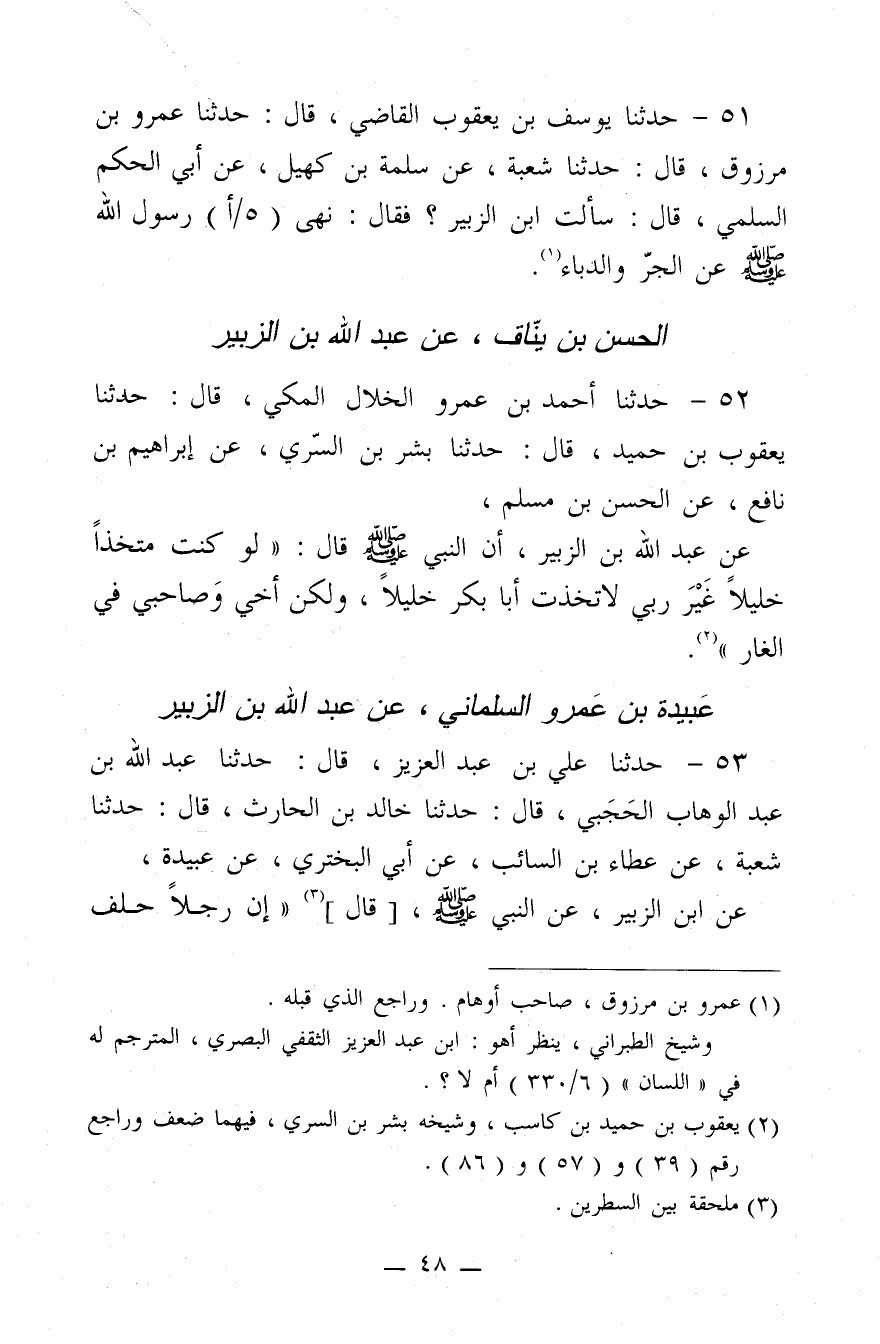 ٥١ - حدثنا يوسف بن يعقوب القاضي ، قال : حدثنا عمرو بن
مرزوق ، قال : حدثنا شعبة ، عن سلمة بن كهيل ، عن أبي الحكم
السلمي ، قال : سألت ابن الزبير ؟ فقال : نهى ( ٥/أ ) رسول الله
ﷺ عن الجرّ والدباء(١).
الحسن بن ينّاق ، عن عبد الله بن الزبير
٥٢ - حدثنا أحمد بن عمرو الخلال المكي ، قال : حدثنا
يعقوب بن حميد ، قال : حدثنا بشر بن السّري ، عن إبراهيم بن
نافع ، عن الحسن بن مسلم ،
عن عبد الله بن الزبير ، أن النبي ﷺ قال : « لو كنت متخذاً
خليلاً غَيْرَ ربي لاتخذت أبا بكر خليلاً ، ولكن أخي وَصاحبي في
الغار »(٢).
عَبيدة بن عَمرو السلماني ، عن عبد الله بن الزبير
٥٣ - حدثنا علي بن عبد العزيز ، قال : حدثنا عبد الله بن
عبد الوهاب الحَجَبي ، قال : حدثنا خالد بن الحارث ، قال : حدثنا
شعبة ، عن عطاء بن السائب ، عن أبي البختري ، عن عبيدة ،
عن ابن الزبير ، عن النبي ﷺ ، [ قال ](٣) « إن رجلاً حلف
(١) عمرو بن مرزوق ، صاحب أوهام . وراجع الذي قبله .
وشيخ الطبراني ، ينظر أهو : ابن عبد العزيز الثقفي البصري ، المترجم له
في « اللسان » ( ٦/ ٣٣٠ ) أم لا ؟ .
(٢) يعقوب بن حميد بن كاسب ، وشيخه بشر بن السري ، فيهما ضعف وراجع
رقم ( ٣٩ ) و ( ٥٧ ) و ( ٨٦ ) .
(٣) ملحقة بين السطرين .
— ٤٨ —